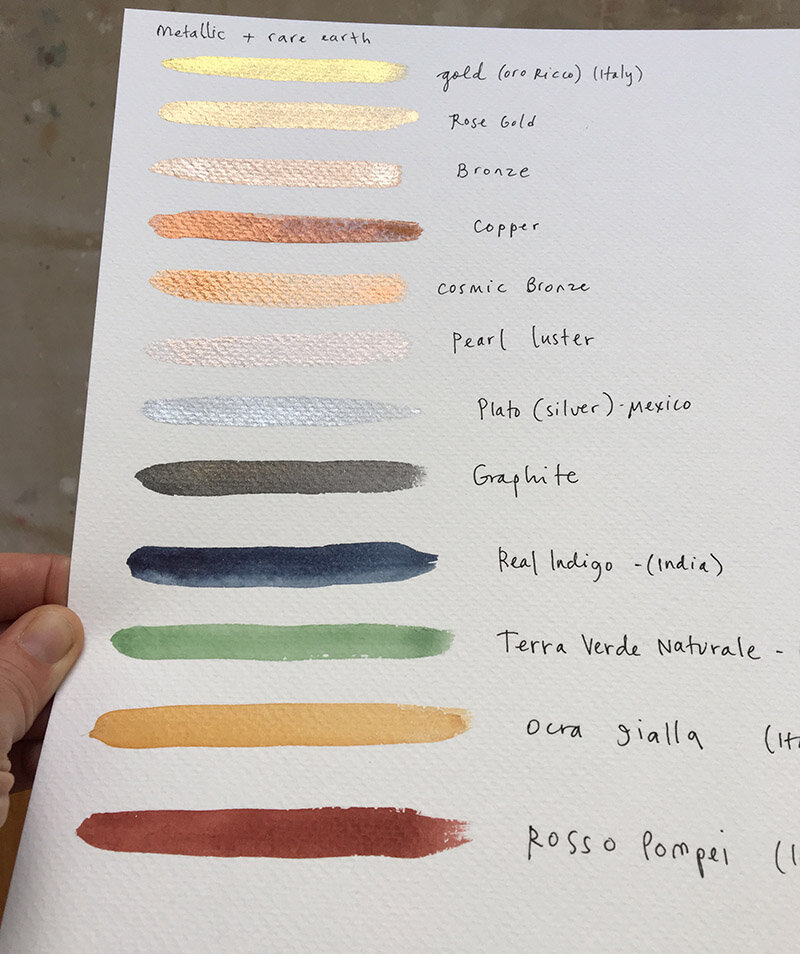 Metallic + rare earth
gold (oro Ricco) (Italy)
Rose Gold
Bronze
Copper
Cosmic Bronze
Pearl luster
Plato (silver) - Mexico
Graphite
Real Indigo - (India)
Terra Verde Naturale -
Ocra gialla (It
Rosso Pompei (I